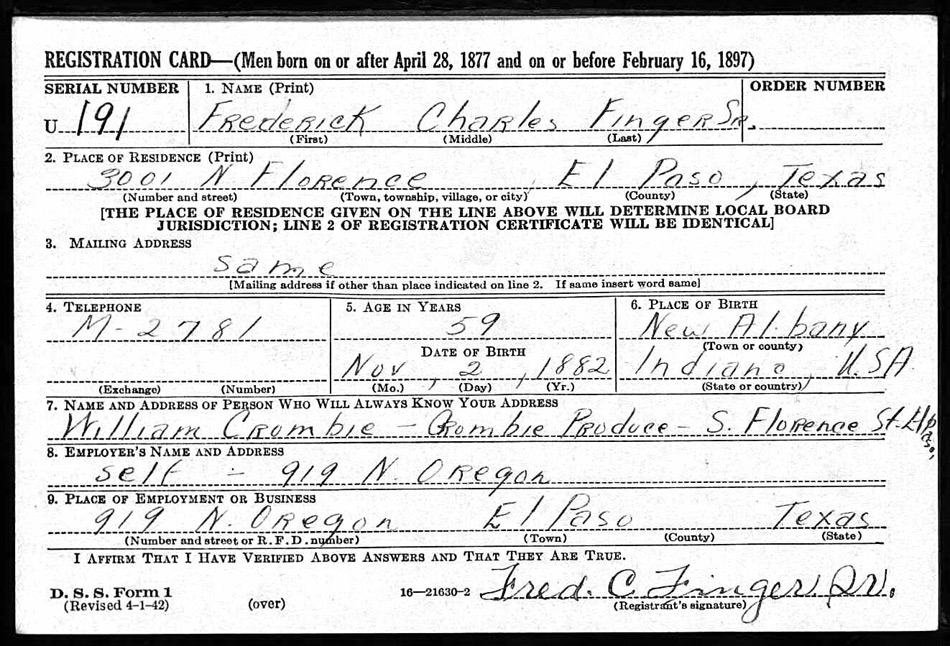 REGISTRATION CARD—(Men born on or after April 28, 1877 and on or before February 16, 1897)
SERIAL NUMBER 1. NAME (Print) ORDER NUMBER
U 191 Frederick Charles Finger Sr.
(First) (Middle) (Last)
2. PLACE OF RESIDENCE (Print)
3001 N Florence, El Paso, Texas
(Number and street) (Town, township, village, or city) (County) (State)
[THE PLACE OF RESIDENCE GIVEN ON THE LINE ABOVE WILL DETERMINE LOCAL BOARD
JURISDICTION; LINE 2 OF REGISTRATION CERTIFICATE WILL BE IDENTICAL]
3. MAILING ADDRESS
same
[Mailing address if other than place indicated on line 2. If same insert word same]
4. TELEPHONE 5. AGE IN YEARS 6. PLACE OF BIRTH
M-2781 59 New Albany
DATE OF BIRTH (Town or county)
Nov, 2, 1882 Indiana, U.SA.
(Exchange) (Number) (Mo.) (Day) (Yr.) (State or country)
7. NAME AND ADDRESS OF PERSON WHO WILL ALWAYS KNOW YOUR ADDRESS
William Crombie – Crombie Produce – S. Florence St. Elpaso,
8. EMPLOYER'S NAME AND ADDRESS
self – 919 N. Oregon
9. PLACE OF EMPLOYMENT OR BUSINESS
919 N. Oregon El Paso Texas
(Number and street or R.F.D. number) (Town) (County) (State)
I AFFIRM THAT I HAVE VERIFIED ABOVE ANSWERS AND THAT THEY ARE TRUE.
D. S. S. Form 1 16—21630-2 Fred. C. Finger, Sr.
(Revised 4-1-42) (over) (Registrant's signature)